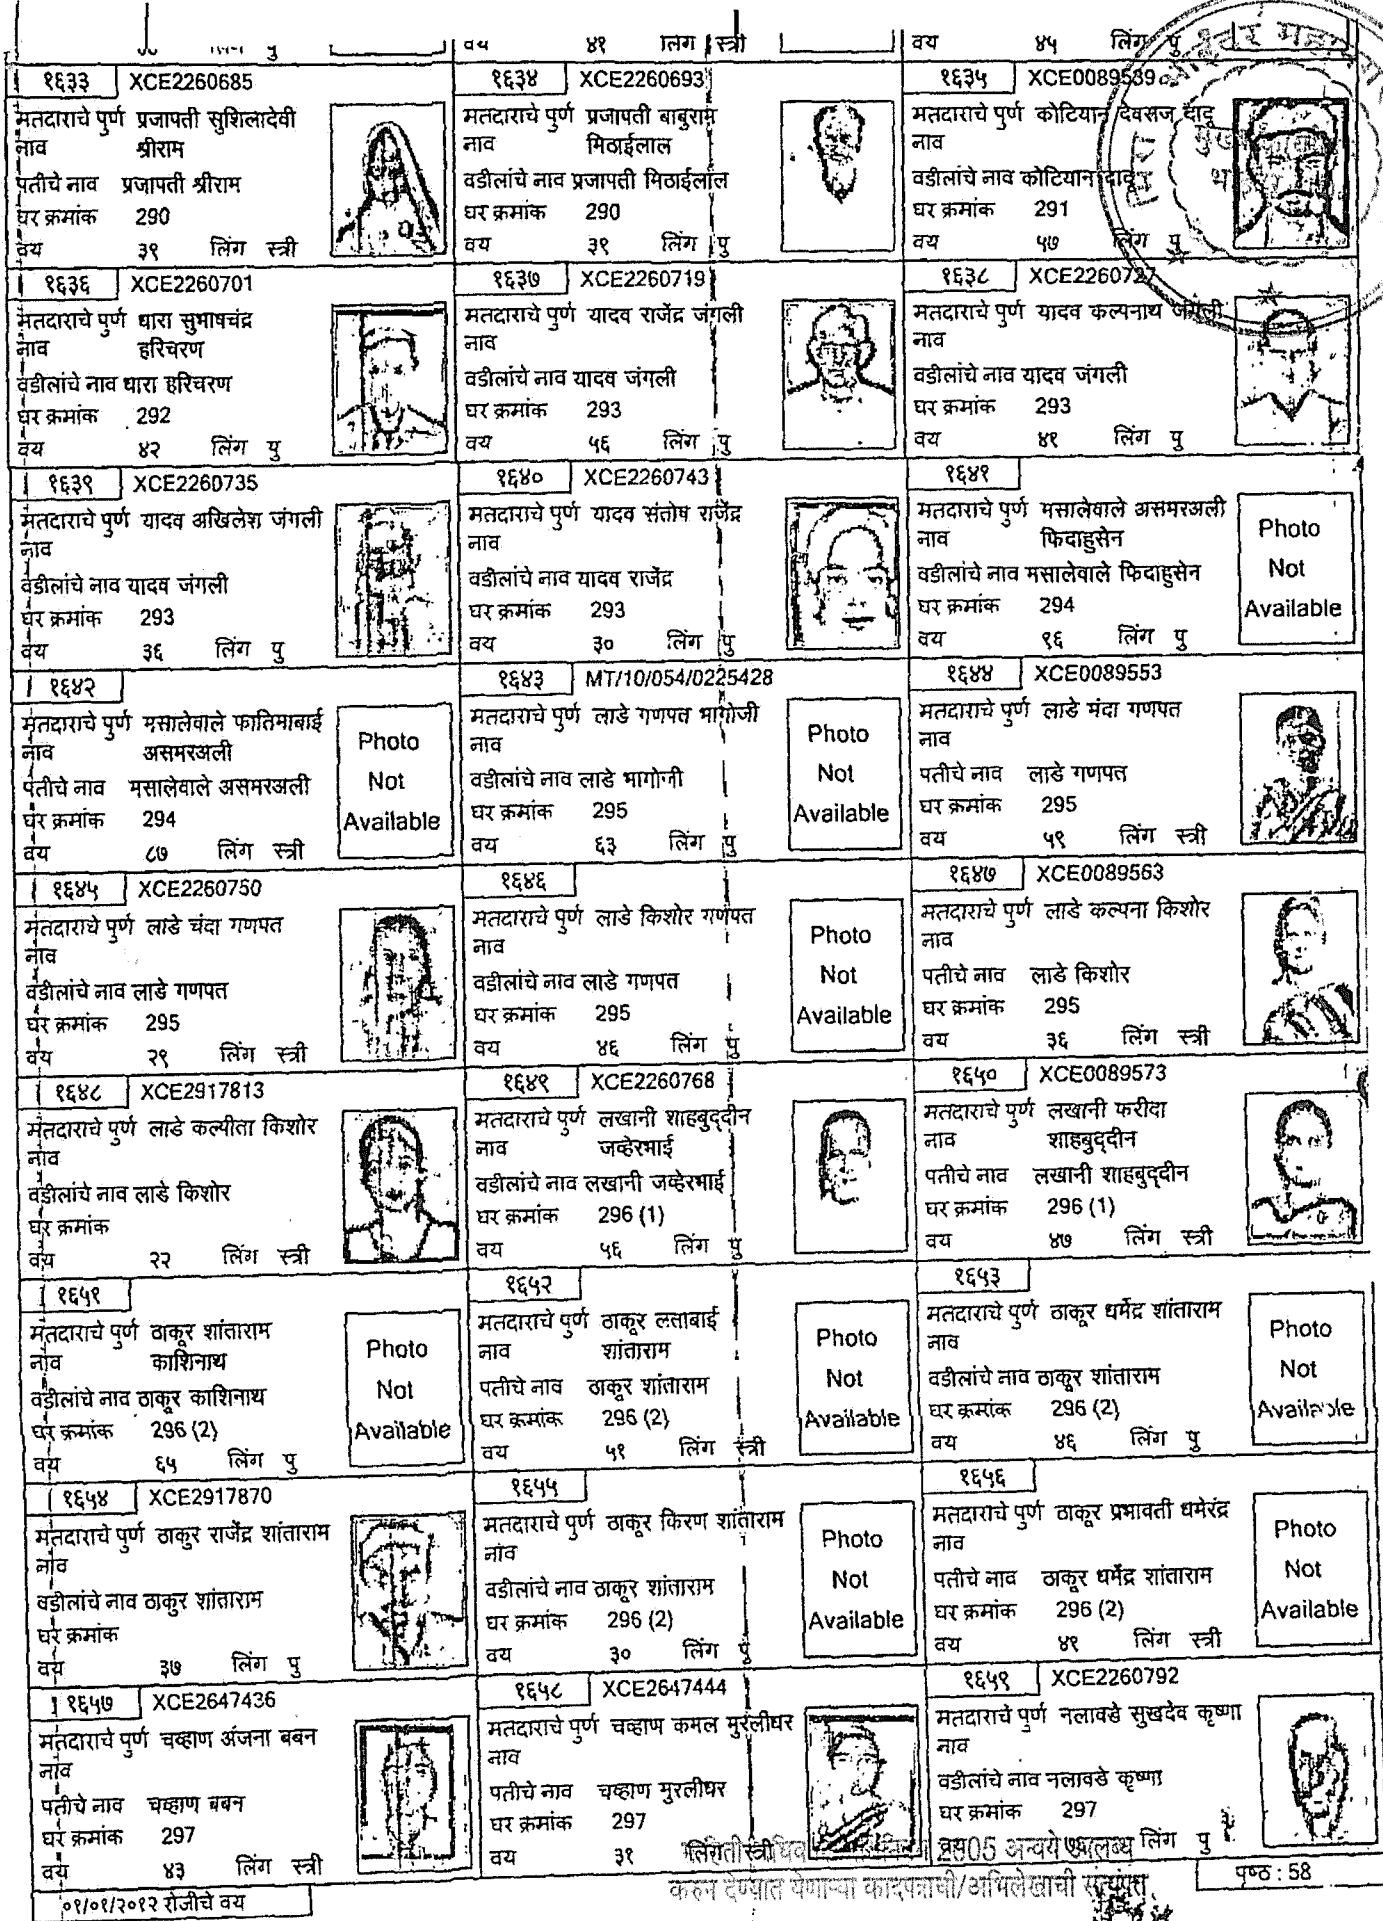 लिंग पु
वय ४१ लिंग स्त्री
वय ४५ लिंग पु
१६३३ XCE2260685
मतदाराचे पुर्ण प्रजापती सुशिलादेवी
नाव श्रीराम
पतीचे नाव प्रजापती श्रीराम
घर क्रमांक 290
वय ३९ लिंग स्त्री
१६३४ XCE2260693
मतदाराचे पुर्ण प्रजापती बाबुराम
नाव मिठाईलाल
वडीलांचे नाव प्रजापती मिठाईलाल
घर क्रमांक 290
वय ३९ लिंग पु
१६३५ XCE0089539
मतदाराचे पुर्ण कोटियान देवराज दादू
नाव
वडीलांचे नाव कोटियान दादू
घर क्रमांक 291
वय ५७ लिंग पु
१६३६ XCE2260701
मतदाराचे पुर्ण धारा सुभाषचंद्र
नाव हरिचरण
वडीलांचे नाव धारा हरिचरण
घर क्रमांक 292
वय ४२ लिंग पु
१६३७ XCE2260719
मतदाराचे पुर्ण यादव राजेंद्र जंगली
नाव
वडीलांचे नाव यादव जंगली
घर क्रमांक 293
वय ५६ लिंग पु
१६३८ XCE2260727
मतदाराचे पुर्ण यादव कल्पनाथ जंगली
नाव
वडीलांचे नाव यादव जंगली
घर क्रमांक 293
वय ४१ लिंग पु
१६३९ XCE2260735
मतदाराचे पुर्ण यादव अखिलेश जंगली
नाव
वडीलांचे नाव यादव जंगली
घर क्रमांक 293
वय ३६ लिंग पु
१६४० XCE2260743
मतदाराचे पुर्ण यादव संतोष राजेंद्र
नाव
वडीलांचे नाव यादव राजेंद्र
घर क्रमांक 293
वय ३० लिंग पु
१६४१
मतदाराचे पुर्ण मसालेवाले असमरअली
नाव फिदाहुसेन
वडीलांचे नाव मसालेवाले फिदाहुसेन
घर क्रमांक 294
वय ९६ लिंग पु
Photo
Not
Available
१६४२
मतदाराचे पुर्ण मसालेवाले फातिमाबाई
नाव असमरअली
पतीचे नाव मसालेवाले असमरअली
घर क्रमांक 294
वय ८७ लिंग स्त्री
Photo
Not
Available
१६४३ MT/10/054/0225428
मतदाराचे पुर्ण लाडे गणपत भागोजी
नाव
वडीलांचे नाव लाडे भागोजी
घर क्रमांक 295
वय ६३ लिंग पु
Photo
Not
Available
१६४४ XCE0089553
मतदाराचे पुर्ण लाडे मंदा गणपत
नाव
पतीचे नाव लाडे गणपत
घर क्रमांक 295
वय ५९ लिंग स्त्री
१६४५ XCE2260750
मतदाराचे पुर्ण लाडे चंदा गणपत
नाव
वडीलांचे नाव लाडे गणपत
घर क्रमांक 295
वय २९ लिंग स्त्री
१६४६
मतदाराचे पुर्ण लाडे किशोर गणपत
नाव
वडीलांचे नाव लाडे गणपत
घर क्रमांक 295
वय ४६ लिंग पु
Photo
Not
Available
१६४७ XCE0089563
मतदाराचे पुर्ण लाडे कल्पना किशोर
नाव
पतीचे नाव लाडे किशोर
घर क्रमांक 295
वय ३६ लिंग स्त्री
१६४८ XCE2917813
मतदाराचे पुर्ण लाडे कल्पीता किशोर
नाव
वडीलांचे नाव लाडे किशोर
घर क्रमांक
वय २२ लिंग स्त्री
१६४९ XCE2260768
मतदाराचे पुर्ण लखानी शाहबुद्दीन
नाव जव्हेरभाई
वडीलांचे नाव लखानी जव्हेरभाई
घर क्रमांक 296 (1)
वय ५६ लिंग पु
१६५० XCE0089573
मतदाराचे पुर्ण लखानी फरीदा
नाव शाहबुद्दीन
पतीचे नाव लखानी शाहबुद्दीन
घर क्रमांक 296 (1)
वय ४७ लिंग स्त्री
१६५१
मतदाराचे पुर्ण ठाकूर शांताराम
नाव काशिनाथ
वडीलांचे नाव ठाकूर काशिनाथ
घर क्रमांक 296 (2)
वय ६५ लिंग पु
Photo
Not
Available
१६५२
मतदाराचे पुर्ण ठाकूर लताबाई
नाव शांताराम
पतीचे नाव ठाकूर शांताराम
घर क्रमांक 296 (2)
वय ५१ लिंग स्त्री
Photo
Not
Available
१६५३
मतदाराचे पुर्ण ठाकूर धर्मेद्र शांताराम
नाव
वडीलांचे नाव ठाकूर शांताराम
घर क्रमांक 296 (2)
वय ४६ लिंग पु
Photo
Not
Available
१६५४ XCE2917870
मतदाराचे पुर्ण ठाकुर राजेंद्र शांताराम
नाव
वडीलांचे नाव ठाकुर शांताराम
घर क्रमांक
वय ३७ लिंग पु
१६५५
मतदाराचे पुर्ण ठाकूर किरण शांताराम
नाव
वडीलांचे नाव ठाकूर शांताराम
घर क्रमांक 296 (2)
वय ३० लिंग पु
Photo
Not
Available
१६५६
मतदाराचे पुर्ण ठाकूर प्रभावती धमेरंद्र
नाव
पतीचे नाव ठाकूर धर्मेद्र शांताराम
घर क्रमांक 296 (2)
वय ४१ लिंग स्त्री
Photo
Not
Available
१६५७ XCE2647436
मतदाराचे पुर्ण चव्हाण अंजना बबन
नाव
पतीचे नाव चव्हाण बबन
घर क्रमांक 297
वय ४३ लिंग स्त्री
१६५८ XCE2647444
मतदाराचे पुर्ण चव्हाण कमल मुरलीधर
नाव
पतीचे नाव चव्हाण मुरलीधर
घर क्रमांक 297
वय ३१ लिंग स्त्री
१६५९ XCE2260792
मतदाराचे पुर्ण नलावडे सुखदेव कृष्णा
नाव
वडीलांचे नाव नलावडे कृष्णा
घर क्रमांक 297
वय ७६ लिंग पु
2005 अन्वये उपलब्ध
करुन देण्यात येणाऱ्या कादपत्राची/अभिलेखाची सत्यप्रत
०१/०१/२०१२ रोजीचे वय
पृष्ठ : 58